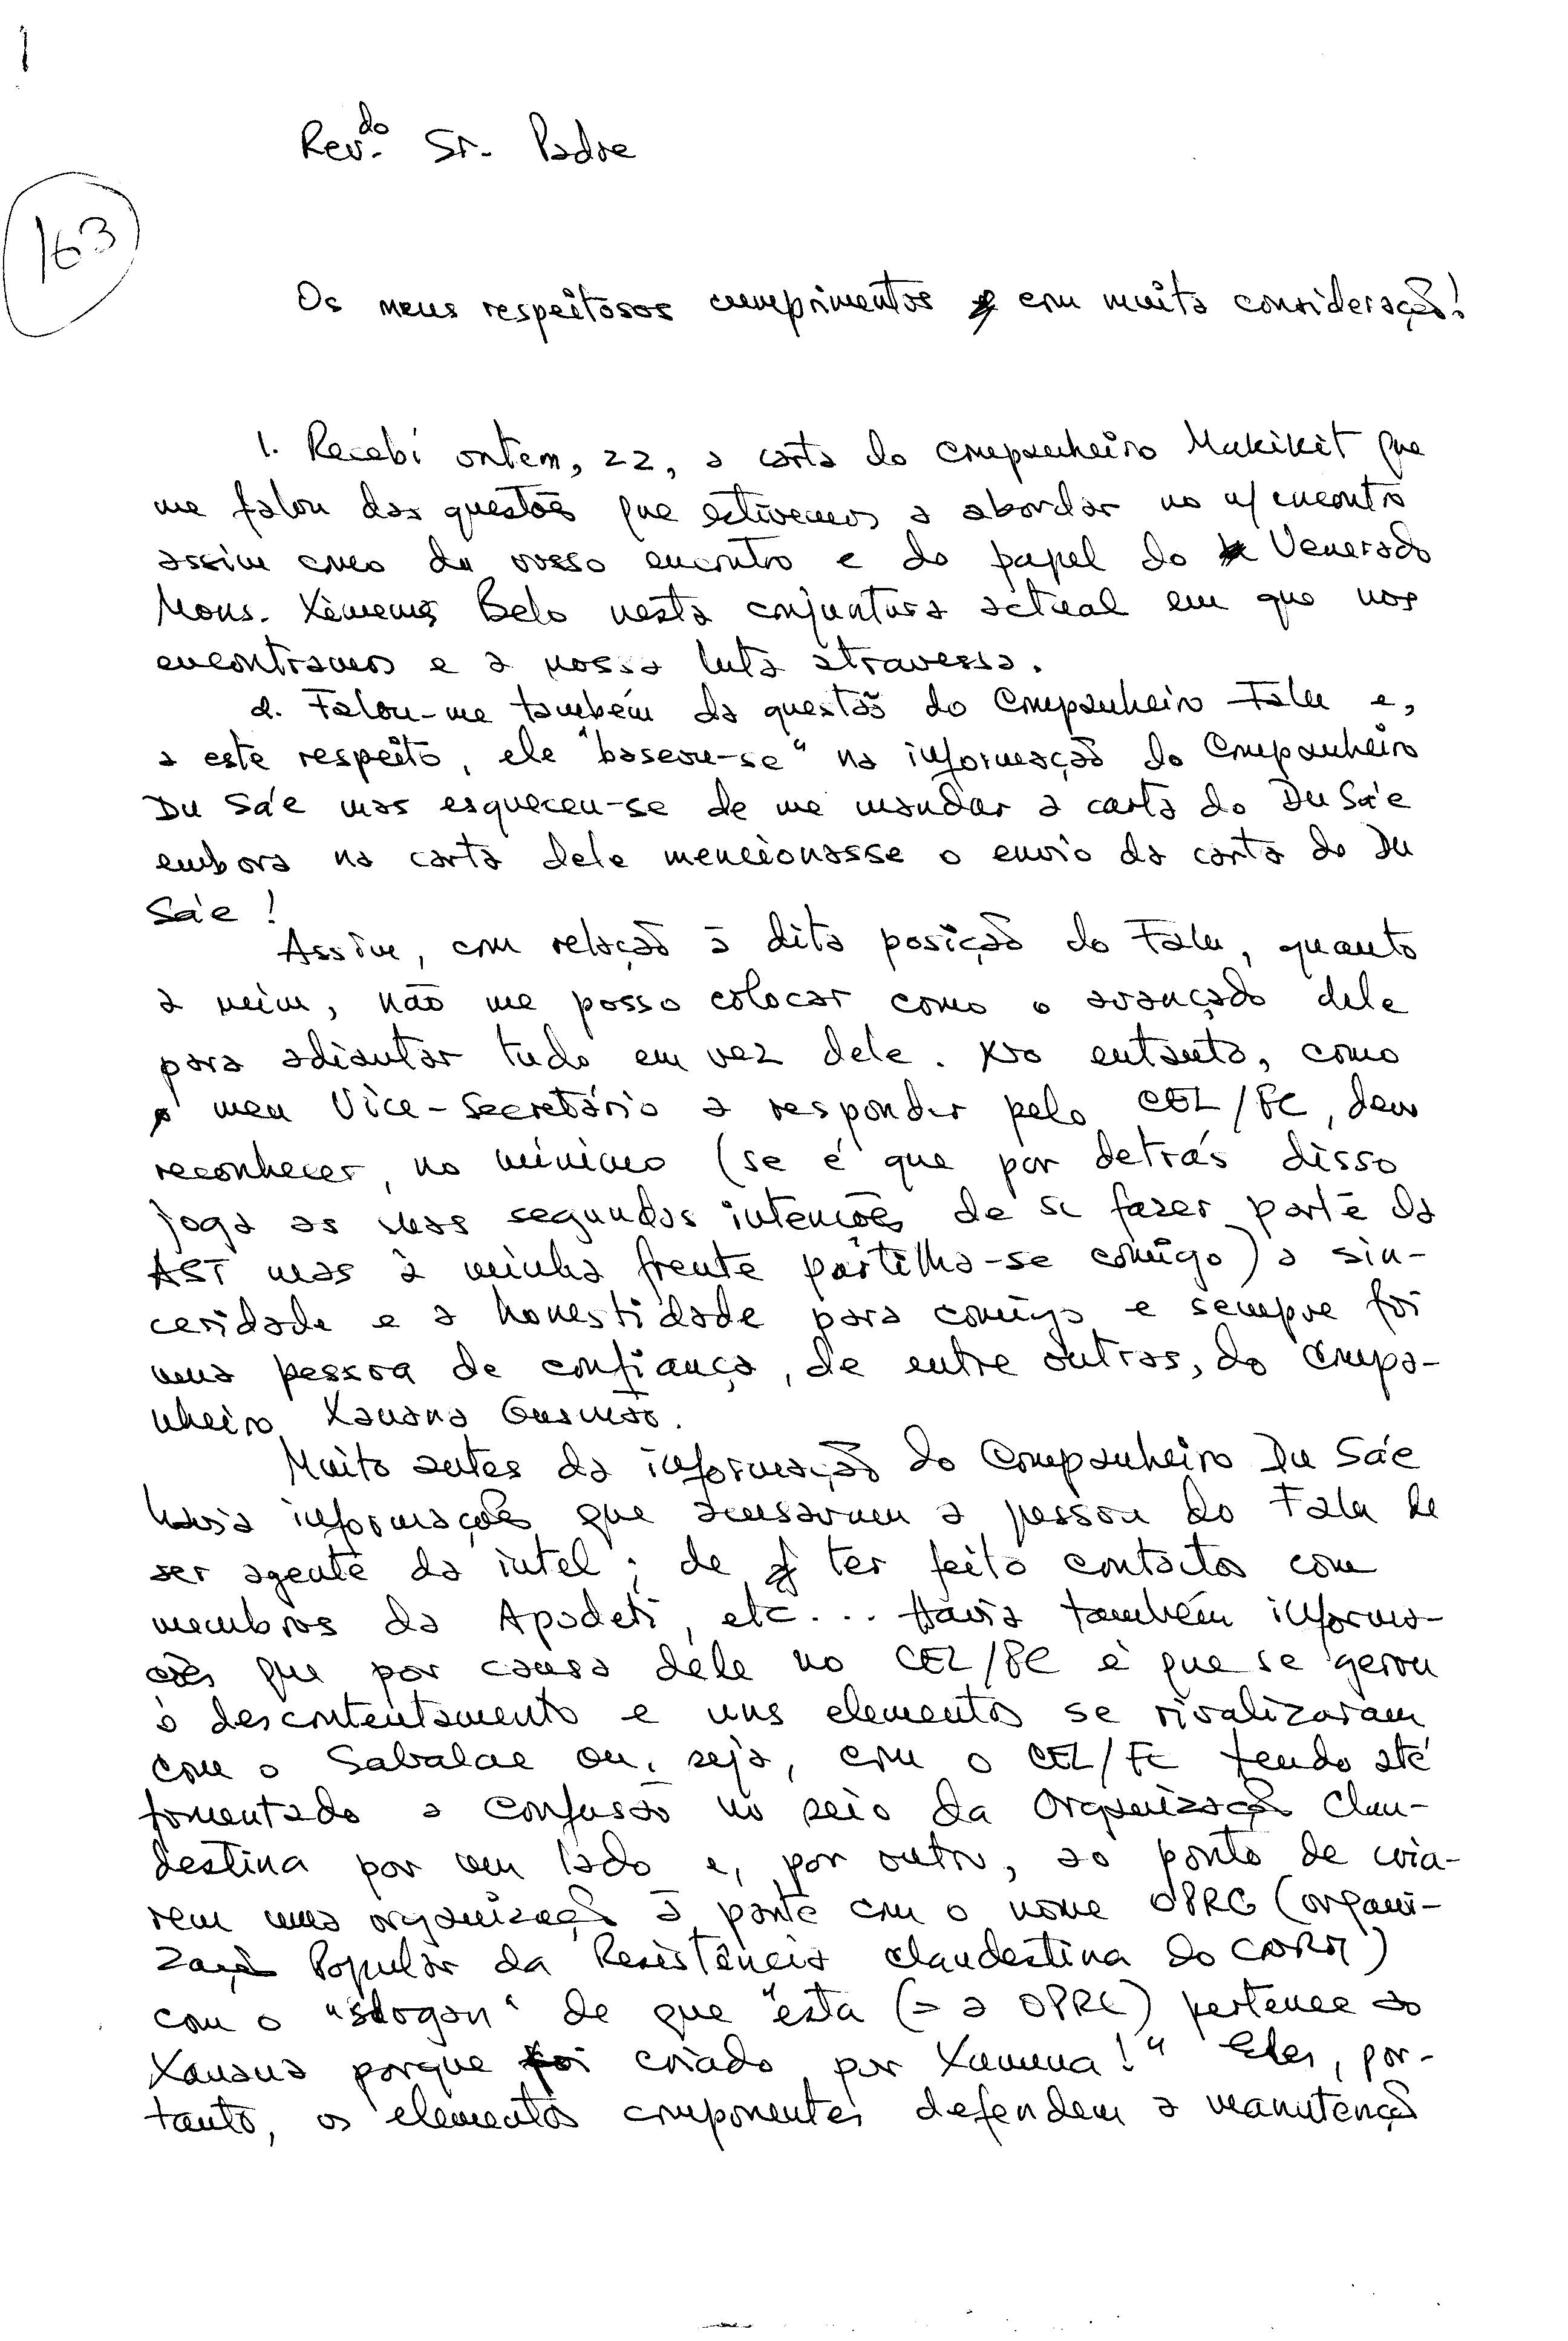 1
Rev.do Sr. Padre
163
Os meus respeitosos cumprimentos com muita consideração!
1. Recebi ontem, 22, a carta do companheiro Makikit que
me falou das questões que estivemos a abordar no n/ encontro
assim como do vosso encontro e do papel do Venerado
Mons. Ximenes Belo nesta conjuntura actual em que nos
encontramos e a nossa luta atravessa.
2. Falou-me também da questão do Companheiro Falu e,
a este respeito, ele "baseou-se" na informação do Companheiro
Du Sa'e mas esqueceu-se de me mandar a carta do Du Sa'e
embora na carta dele mencionasse o envio da carta do Du
Sa'e!
Assim, com relação à dita posição do Falu, quanto
a mim, não me posso colocar como o avançado dele
para adiantar tudo em vez dele. No entanto, como
meu Vice-Secretário a responder pelo CEL/FC, devo
reconhecer, no mínimo (se é que por detrás disso
joga as suas segundas intenções de se fazer parte da
AST mas à minha frente partilha-se comigo) a sin-
ceridade e a honestidade para comigo e sempre foi
uma pessoa de confiança, de entre outras, do Compa-
nheiro Xanana Gusmão.
Muito antes da informação do Companheiro Du Sa'e
havia informações que acusavam a pessoa do Falu de
ser agente da intel; de ter feito contactos com
membros da Apodeti, etc... Havia também informa-
ções que por causa dele no CEL/FC é que se gerou
o descontentamento e uns elementos se rivalizaram
com o Sabalae ou, seja, com o CEL/FC tendo até
fomentado a confusão no seio da Organização Clan-
destina por um lado e, por outro, ao ponto de cria-
rem uma organização à parte com o nome OPRC (organi-
zação Popular da Resistência clandestina do CNRM)
com o "slogan" de que "esta (= a OPRC) pertence ao
Xanana porque foi criado por Xanana!" Eles, por-
tanto, os elementos componentes defendem a manutenção